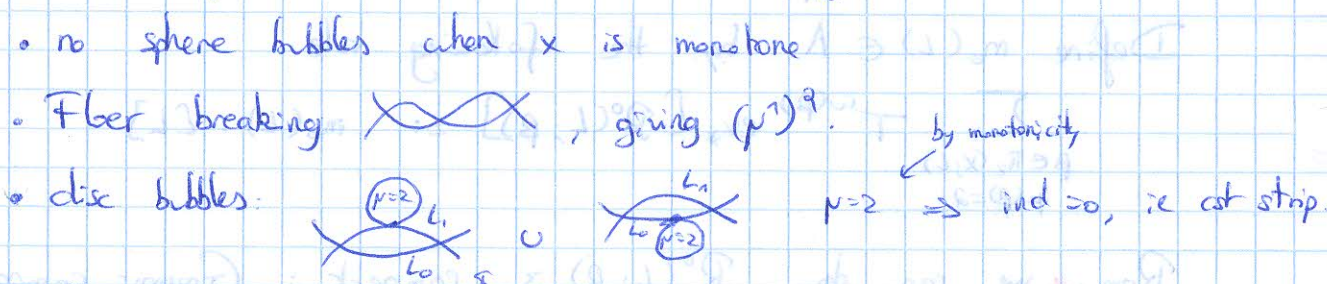 • no sphere bubbles when X is monotone
• Floer breaking , giving (μ¹)².
by monotonicity
• disc bubbles: μ=2 L₁ L₀ ∪ L₁ L₀ μ=2 μ=2 ⇒ ind=0, ie cst strip.